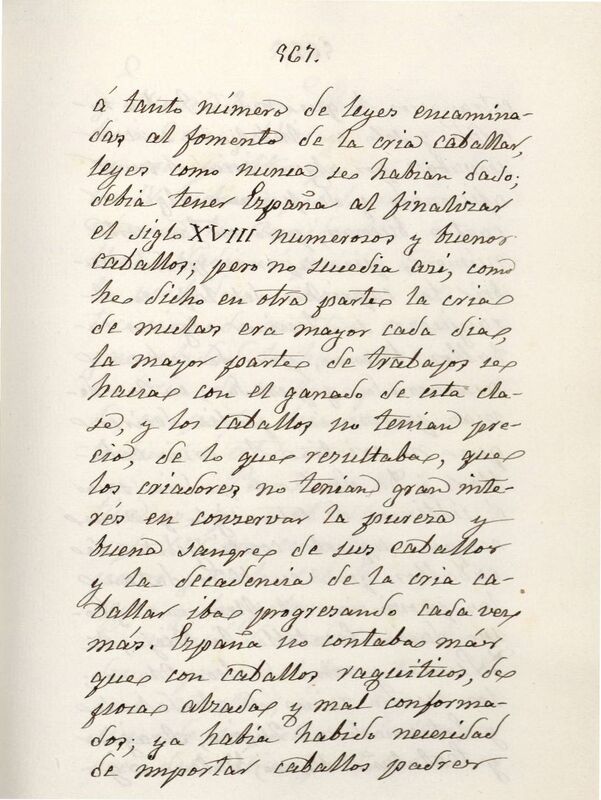 867.
á tanto número de leyes encamina-
das al fomento de la cria caballar,
leyes como nunca se habian dado;
debia tener España al finalizar
el siglo XVIII numerosos y buenos
caballos; pero no sucedia asi, como
he dicho en otra parte la cria
de mulas era mayor cada dia,
la mayor parte de trabajos se
hacia con el ganado de esta cla-
se, y los caballos no tenian pre-
cio, de lo que resultaba, que
los criadores no tenian gran inte-
rés en conservar la pureza y
buena sangre de sus caballos
y la decadencia de la cria ca-
ballar iba progresando cada vez
más. España no contaba más
que con caballos raquiticos, de
poca alzada y mal conforma-
dos; ya habia habido necesidad
de importar caballos padres